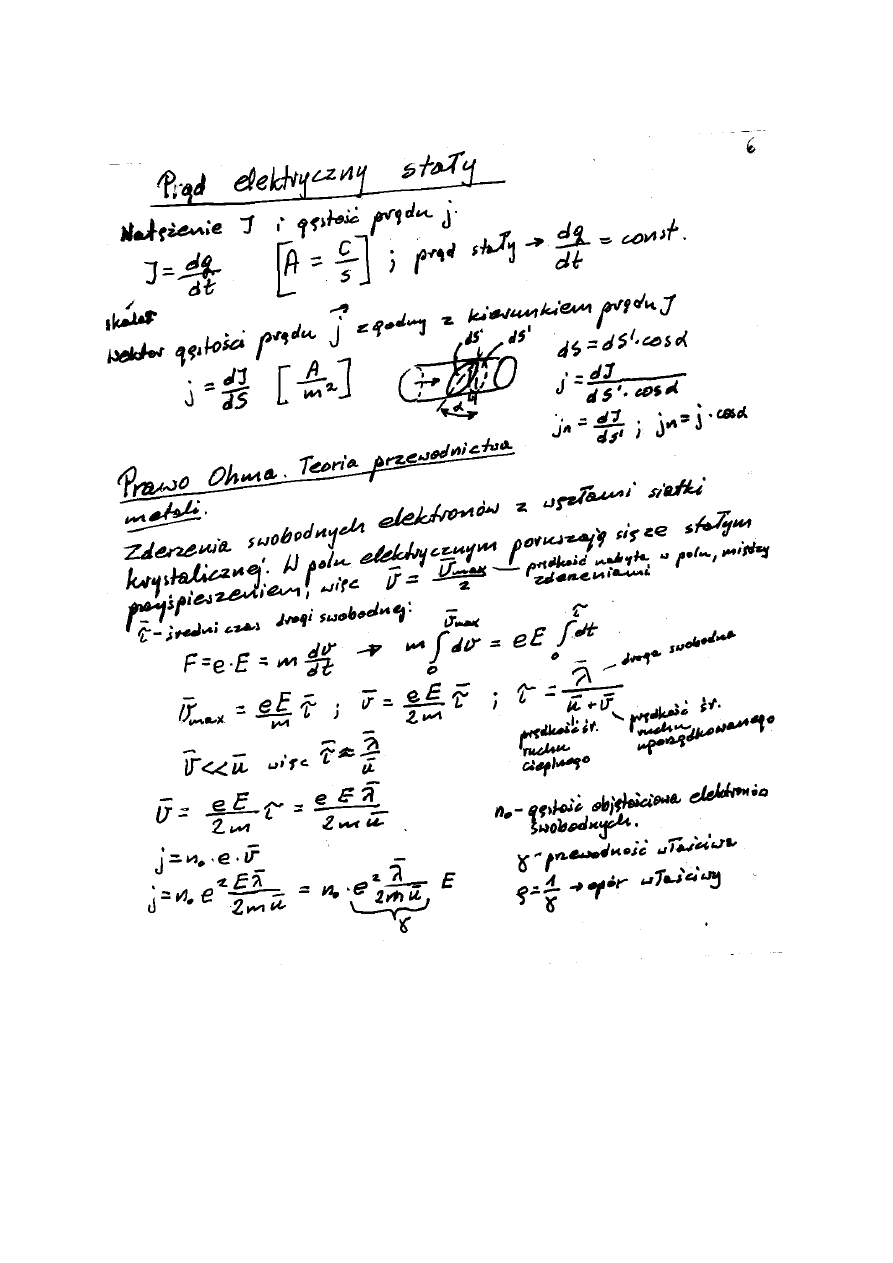 6
Prąd elektryczny stały
Natężenie J i gęstość prądu j.
J = dq/dt [A = C/s] ; prąd stały → dq/dt = const.
skalar
Wektor gęstości prądu j⃗ zgodny z kierunkiem prądu J
j = dJ/dS [A/m²]
dS dS'
α
dS = dS'·cosα
j = dJ/(dS'·cosα)
jn = dJ/dS' ; jn = j·cosα
Prawo Ohma. Teoria przewodnictwa
metali.
Zderzenia swobodnych elektronów z węzłami siatki
krystalicznej. W polu elektrycznym poruszają się ze stałym
przyśpieszeniem, więc v̄ = v̄max/2 — prędkość nabyta w polu, między zderzeniami
τ̄ - średni czas drogi swobodnej:
F = e·E = m dv/dt → m ∫₀^v̄max dv = eE ∫₀^τ̄ dt
v̄max = eE/m τ̄ ; v̄ = eE/2m τ̄ ; τ̄ = λ̄/(ū + v̄) — droga swobodna
prędkość śr. ruchu cieplnego
prędkość śr. ruchu uporządkowanego
v̄ << ū więc τ̄ ≈ λ̄/ū
v̄ = eE/2m τ̄ = eEλ̄/2mū
n₀ - gęstość objętościowa elektronów
swobodnych.
j = n₀·e·v̄
γ - przewodność właściwa
j = n₀ e² Eλ̄/2mū = n₀·e² λ̄/2mū E
γ
ρ = 1/γ → opór właściwy